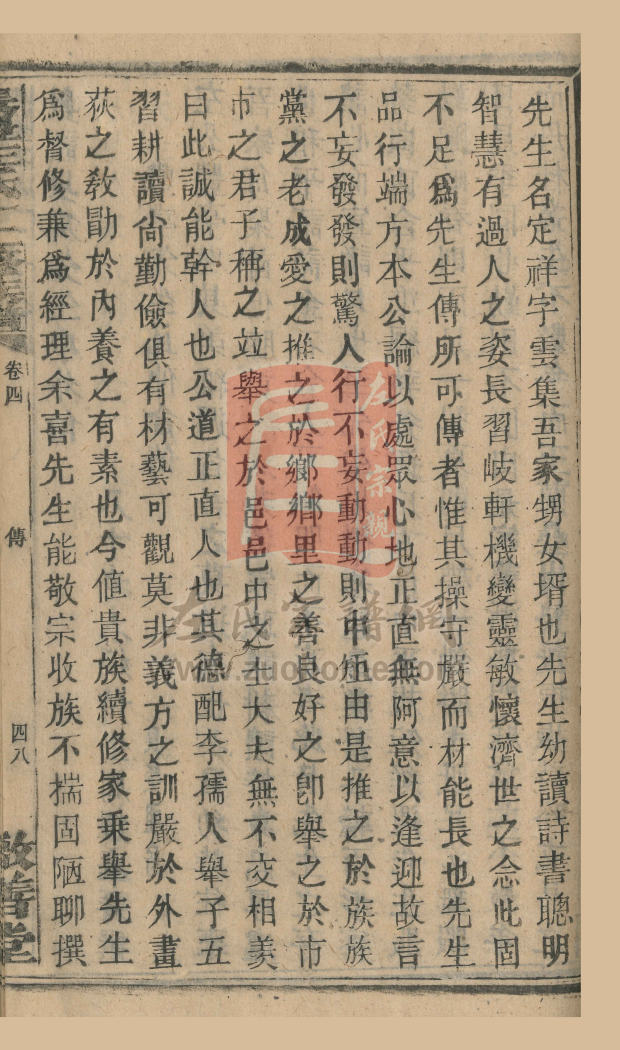 先生名定祥字雲集吾家甥女壻也先生幼讀詩書聰明
智慧有過人之姿長習岐軒機變靈敏懷濟世之念此固
不足爲先生傳所可傳者惟其操守嚴而材能長也先生
品行端方本公論以處眾心地正直無阿意以逢迎故言
不妄發發則驚人行不妄動動則中矩由是推之於族族
黨之老成愛之推之於鄉鄉里之善良好之卽舉之於市
市之君子稱之竝舉之於邑邑中之士大夫無不交相美
曰此誠能幹人也公道正直人也其德配李孺人舉子五
習耕讀尙勤儉俱有材藝可觀莫非義方之訓嚴於外畫
荻之教勖於內養之有素也今値貴族續修家乘舉先生
爲督修兼爲經理余喜先生能敬宗收族不揣固陋聊撰
卷四
傳
四八
敬善堂
左氏宗親
左氏宗譜網